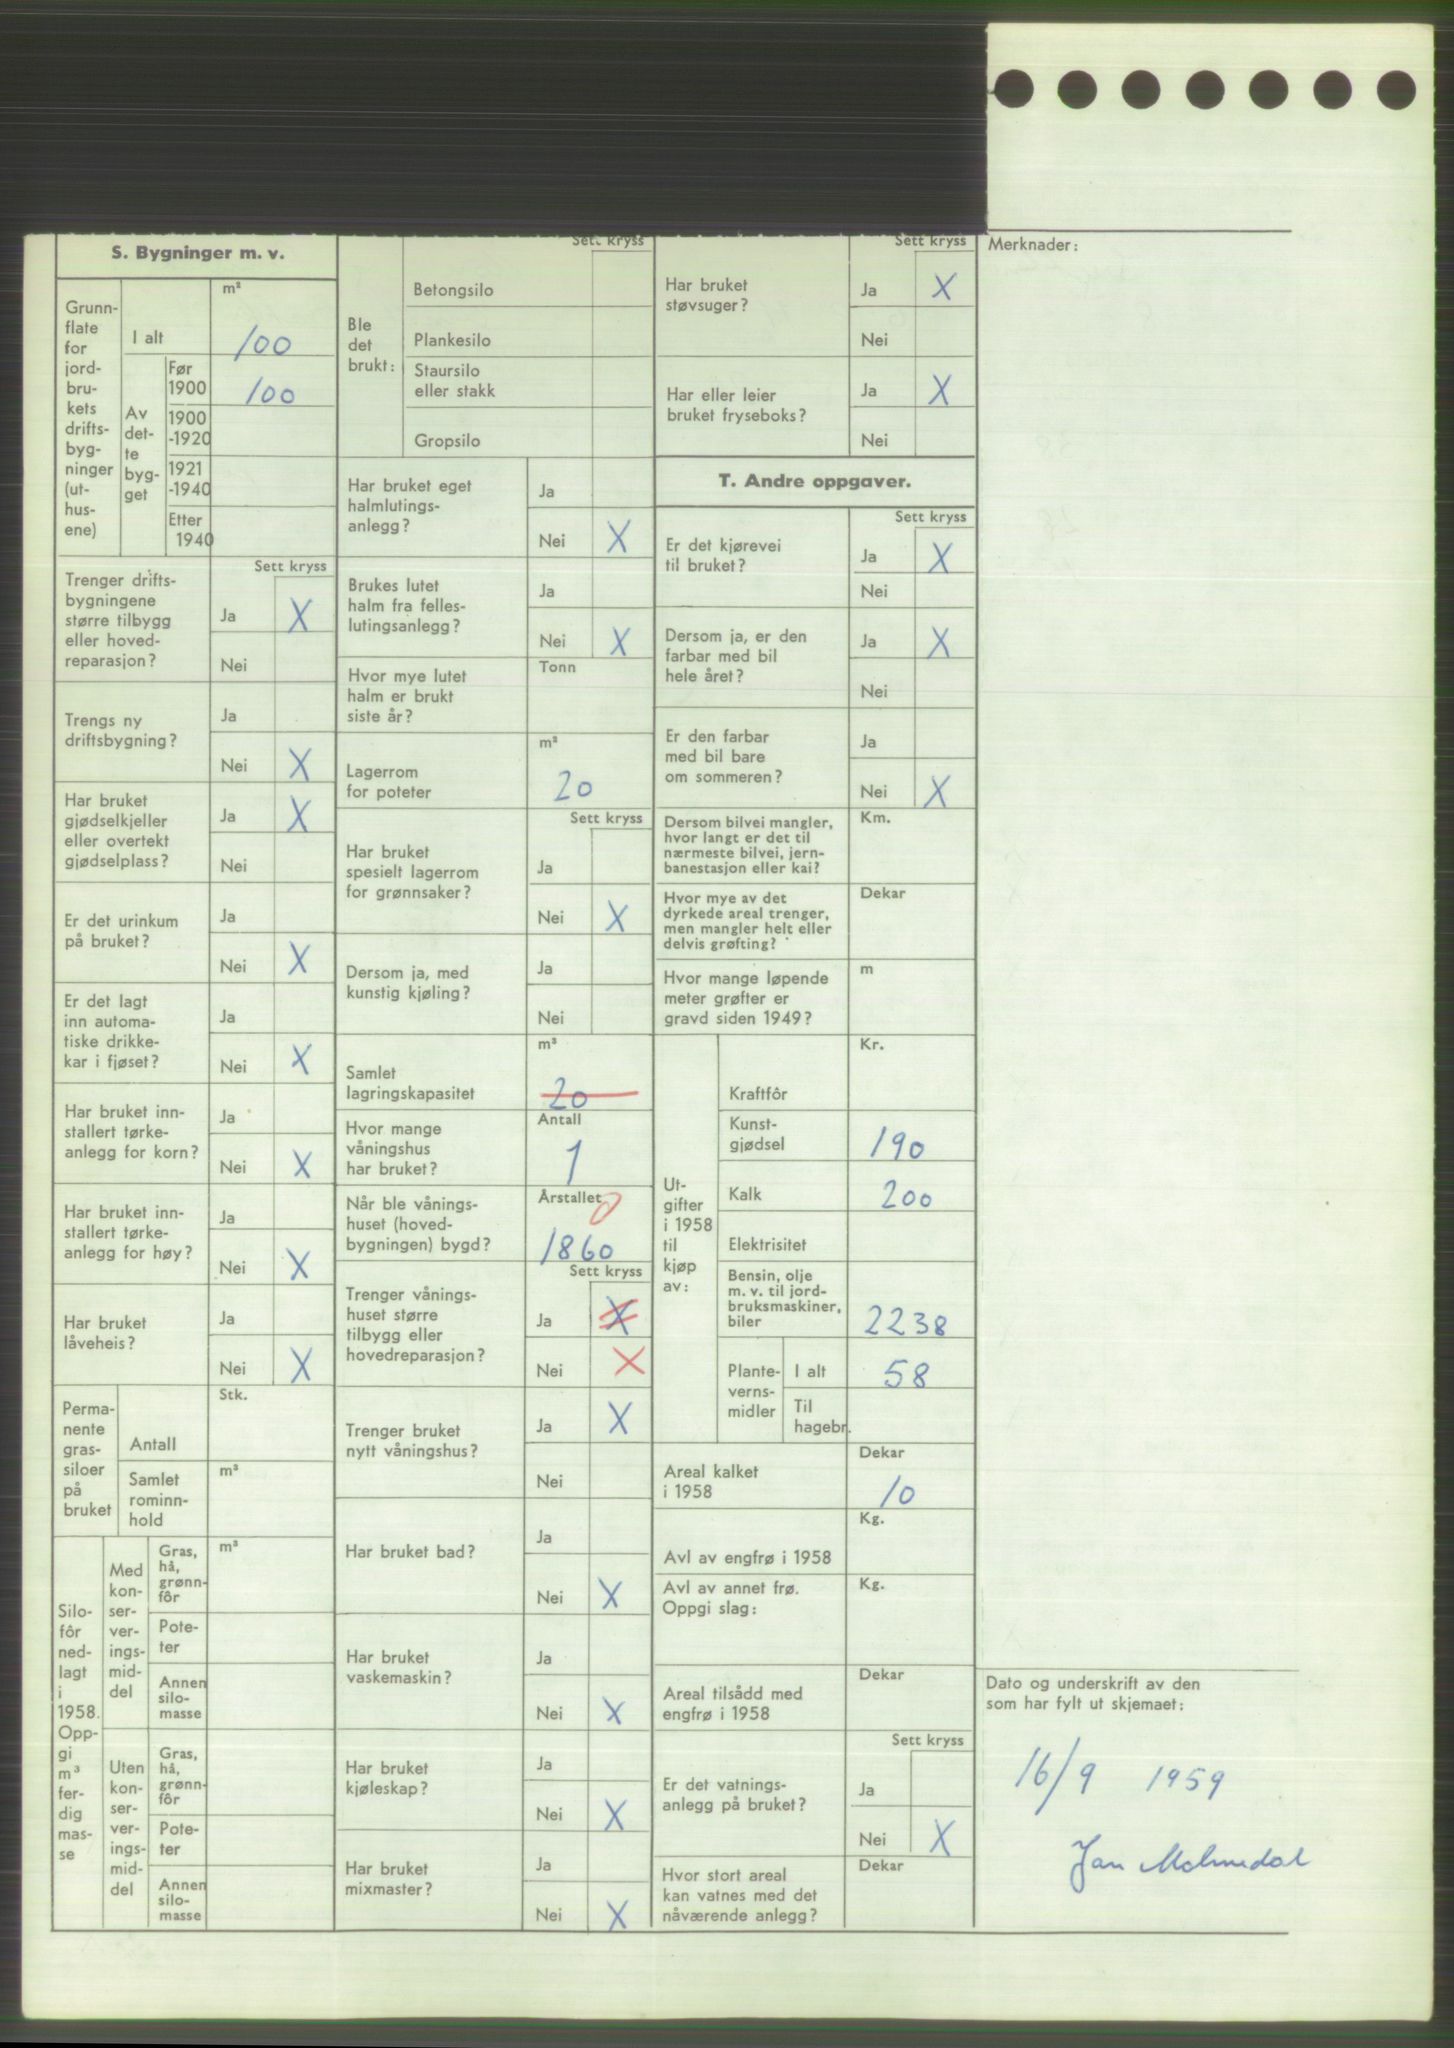 S. Bygninger m. v.
Grunn-
flate
for
jord-
bru-
kets
drifts-
byg-
ninger
(ut-
hus-
ene)
m²
I alt
100
Av
det-
te
byg-
get
Før
1900
100
1900
-1920
1921
-1940
Etter
1940
Sett kryss
Trenger drifts-
bygningene
større tilbygg
eller hoved-
reparasjon?
Ja X
Nei
Trengs ny
driftsbygning?
Ja
Nei X
Har bruket
gjødselkjeller
eller overtekt
gjødselplass?
Ja X
Nei
Er det urinkum
på bruket?
Ja
Nei X
Er det lagt
inn automa-
tiske drikke-
kar i fjøset?
Ja
Nei X
Har bruket inn-
stallert tørke-
anlegg for korn?
Ja
Nei X
Har bruket inn-
stallert tørke-
anlegg for høy?
Ja
Nei X
Har bruket
låveheis?
Ja
Nei X
Perma-
nente
gras-
siloer
på
bruket
Stk.
Antall
m³
Samlet
rominn-
hold
Silo-
fôr
ned-
lagt
i
1958.
Opp-
gi
m³
fer-
dig
mas-
se
Med
kon-
ser-
ver-
ings-
mid-
del
m³
Gras,
hå,
grønn-
fôr
Pote-
ter
Annen
silo-
masse
Uten
kon-
ser-
ver-
ings-
mid-
del
Gras,
hå,
grønn-
fôr
Pote-
ter
Annen
silo-
masse
Sett kryss
Ble
det
brukt:
Betongsilo
Plankesilo
Staursilo
eller stakk
Gropsilo
Har bruket eget
halmlutings-
anlegg?
Ja
Nei X
Brukes lutet
halm fra felles-
lutingsanlegg?
Ja
Nei X
Hvor mye lutet
halm er brukt
siste år?
Tonn
Lagerrom
for poteter
m²
20
Sett kryss
Har bruket
spesielt lagerrom
for grønnsaker?
Ja
Nei X
Dersom ja, med
kunstig kjøling?
Ja
Nei
Samlet
lagringskapasitet
m³
20
Hvor mange
våningshus
har bruket?
Antall
1
Når ble vånings-
huset (hoved-
bygningen) bygd?
Årstallet
0
1860
Sett kryss
Trenger vånings-
huset større
tilbygg eller
hovedreparasjon?
Ja X
Nei X
Trenger bruket
nytt våningshus?
Ja X
Nei
Har bruket bad?
Ja
Nei X
Har bruket
vaskemaskin?
Ja
Nei X
Har bruket
kjøleskap?
Ja
Nei X
Har bruket
mixmaster?
Ja
Nei X
Sett kryss
Har bruket
støvsuger?
Ja X
Nei
Har eller leier
bruket fryseboks?
Ja X
Nei
T. Andre oppgaver.
Sett kryss
Er det kjørevei
til bruket?
Ja X
Nei
Dersom ja, er den
farbar med bil
hele året?
Ja X
Nei
Er den farbar
med bil bare
om sommeren?
Ja
Nei X
Dersom bilvei mangler,
hvor langt er det til
nærmeste bilvei, jern-
banestasjon eller kai?
Km.
Hvor mye av det
dyrkede areal trenger,
men mangler helt eller
delvis grøfting?
Dekar
Hvor mange løpende
meter grøfter er
gravd siden 1949?
m
Ut-
gifter
i 1958
til
kjøp
av:
Kr.
Kraftfôr
Kunst-
gjødsel
190
Kalk
200
Elektrisitet
Bensin, olje
m. v. til jord-
bruksmaskiner,
biler
2238
Plante-
verns-
midler
I alt
58
Til
hagebr.
Areal kalket
i 1958
Dekar
10
Avl av engfrø i 1958
Kg.
Avl av annet frø.
Oppgi slag:
Kg.
Areal tilsådd med
engfrø i 1958
Dekar
Sett kryss
Er det vatnings-
anlegg på bruket?
Ja
Nei X
Hvor stort areal
kan vatnes med det
nåværende anlegg?
Dekar
Merknader:
Dato og underskrift av den
som har fylt ut skjemaet:
16/9 1959
Jan Malmedal